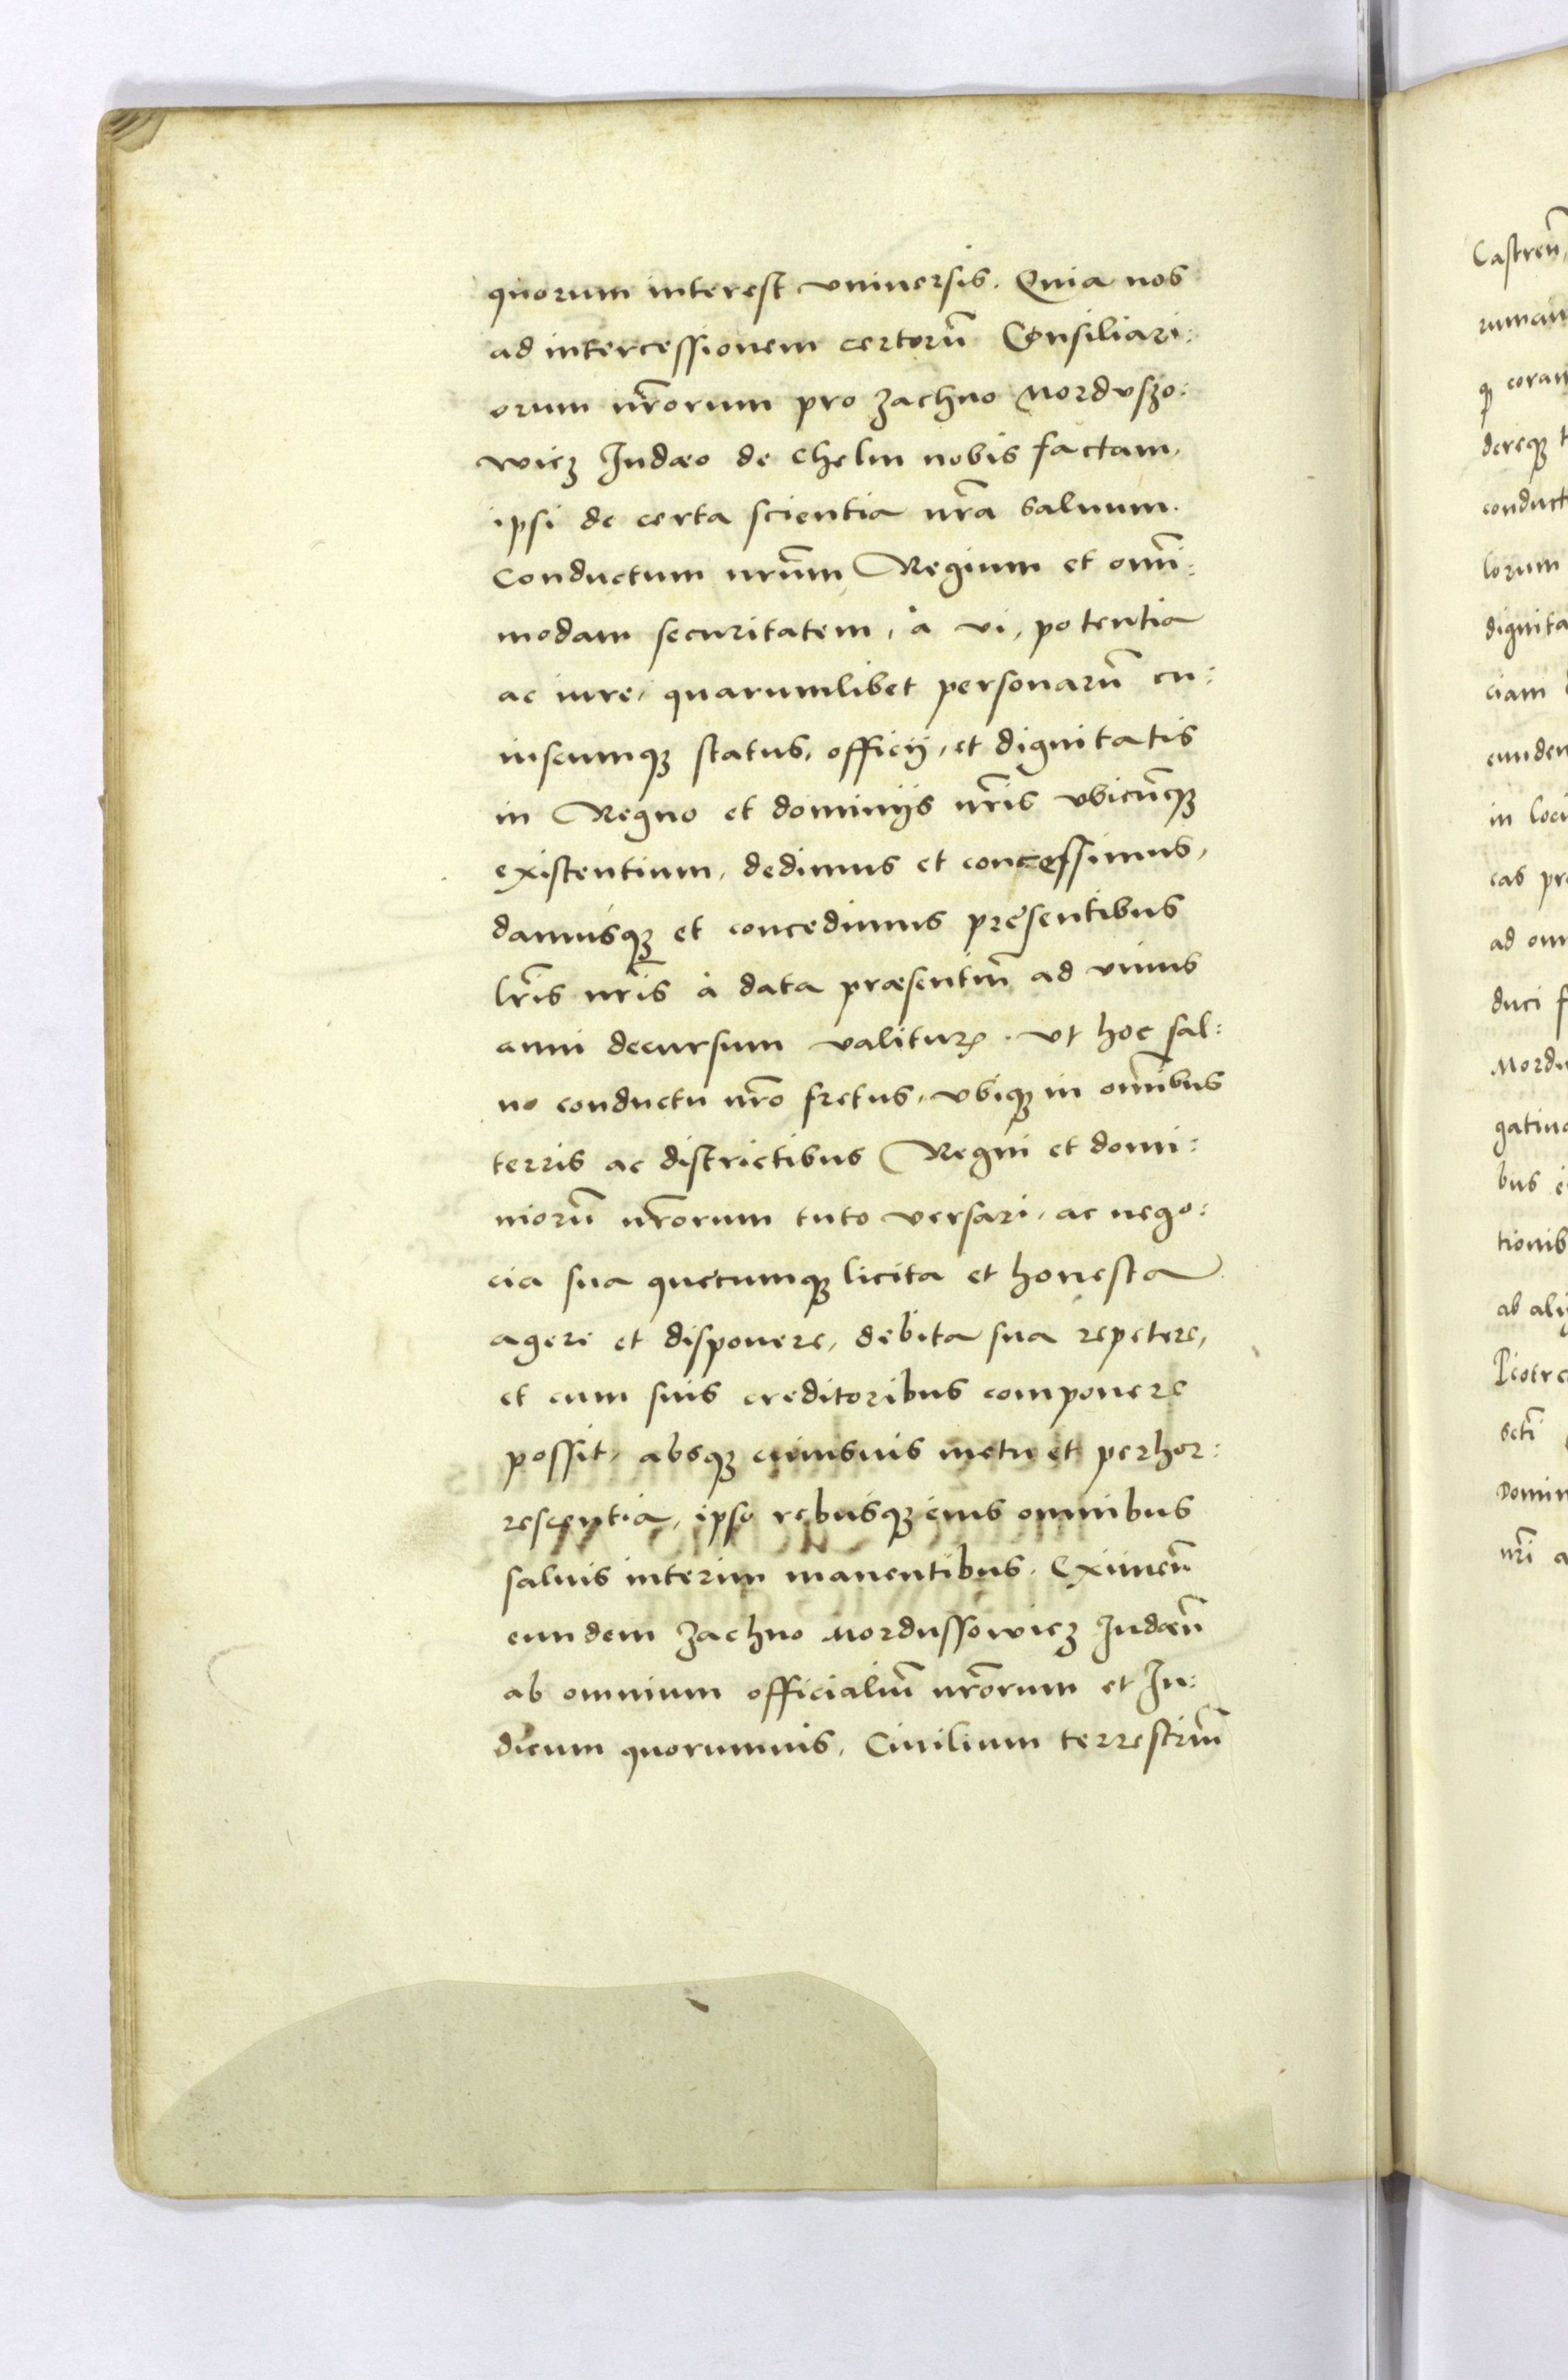 quorum interest vniuersis. Quia nos
ad intercessionem certorũ Consiliari:
orum nr̃orum pro Zachno Morduszo:
wicz Iudæo de Chelm nobis factam,
ipsi de certa scientia nr̃a saluum.
Conductum nr̃um Regium et omni:
modam securitatem, à vi, potentia
ac iure, quarumlibet personarũ cu:
iuscumqꝫ status, officij, et dignitatis
in Regno et dominijs nr̃is vbicũcqꝫ
existentium, dedimus et concessimus,
damusqꝫ et concedimus presentibus
lr̃is nr̃is à data præsentiũ ad vnius
anni decursum valituꝝ. vt hoc sal:
uo conductu nr̃o fretus, vbiqꝫ in oĩnibus
terris ac districtibus Regni et domi:
niorũ nr̃orum tuto versari, ac nego:
cia sua quecumqꝫ licita et honesta
agere et disponere, debita sua repetere,
et cum suis creditoribus componere
possit, absqꝫ cuiusuis metu et perhor:
rescentia, ipso rebusqꝫ eius omnibus
saluis interim manentibus. Eximeñ
eundem Zachno Mordussowicz Iudæũ
ab omnium officialiũ nr̃orum et Iu:
dicum quorumuis, Ciuilium terrestriũ
Castreñ,
coram
dereqꝫ
conduct
lorum
dignita
ciam
eundem
in loci
cas pr
ad om
duci f
Mordu
gatiu
bus
tionib
ab alij
Piotrc
scti
Domin
nr̃i a